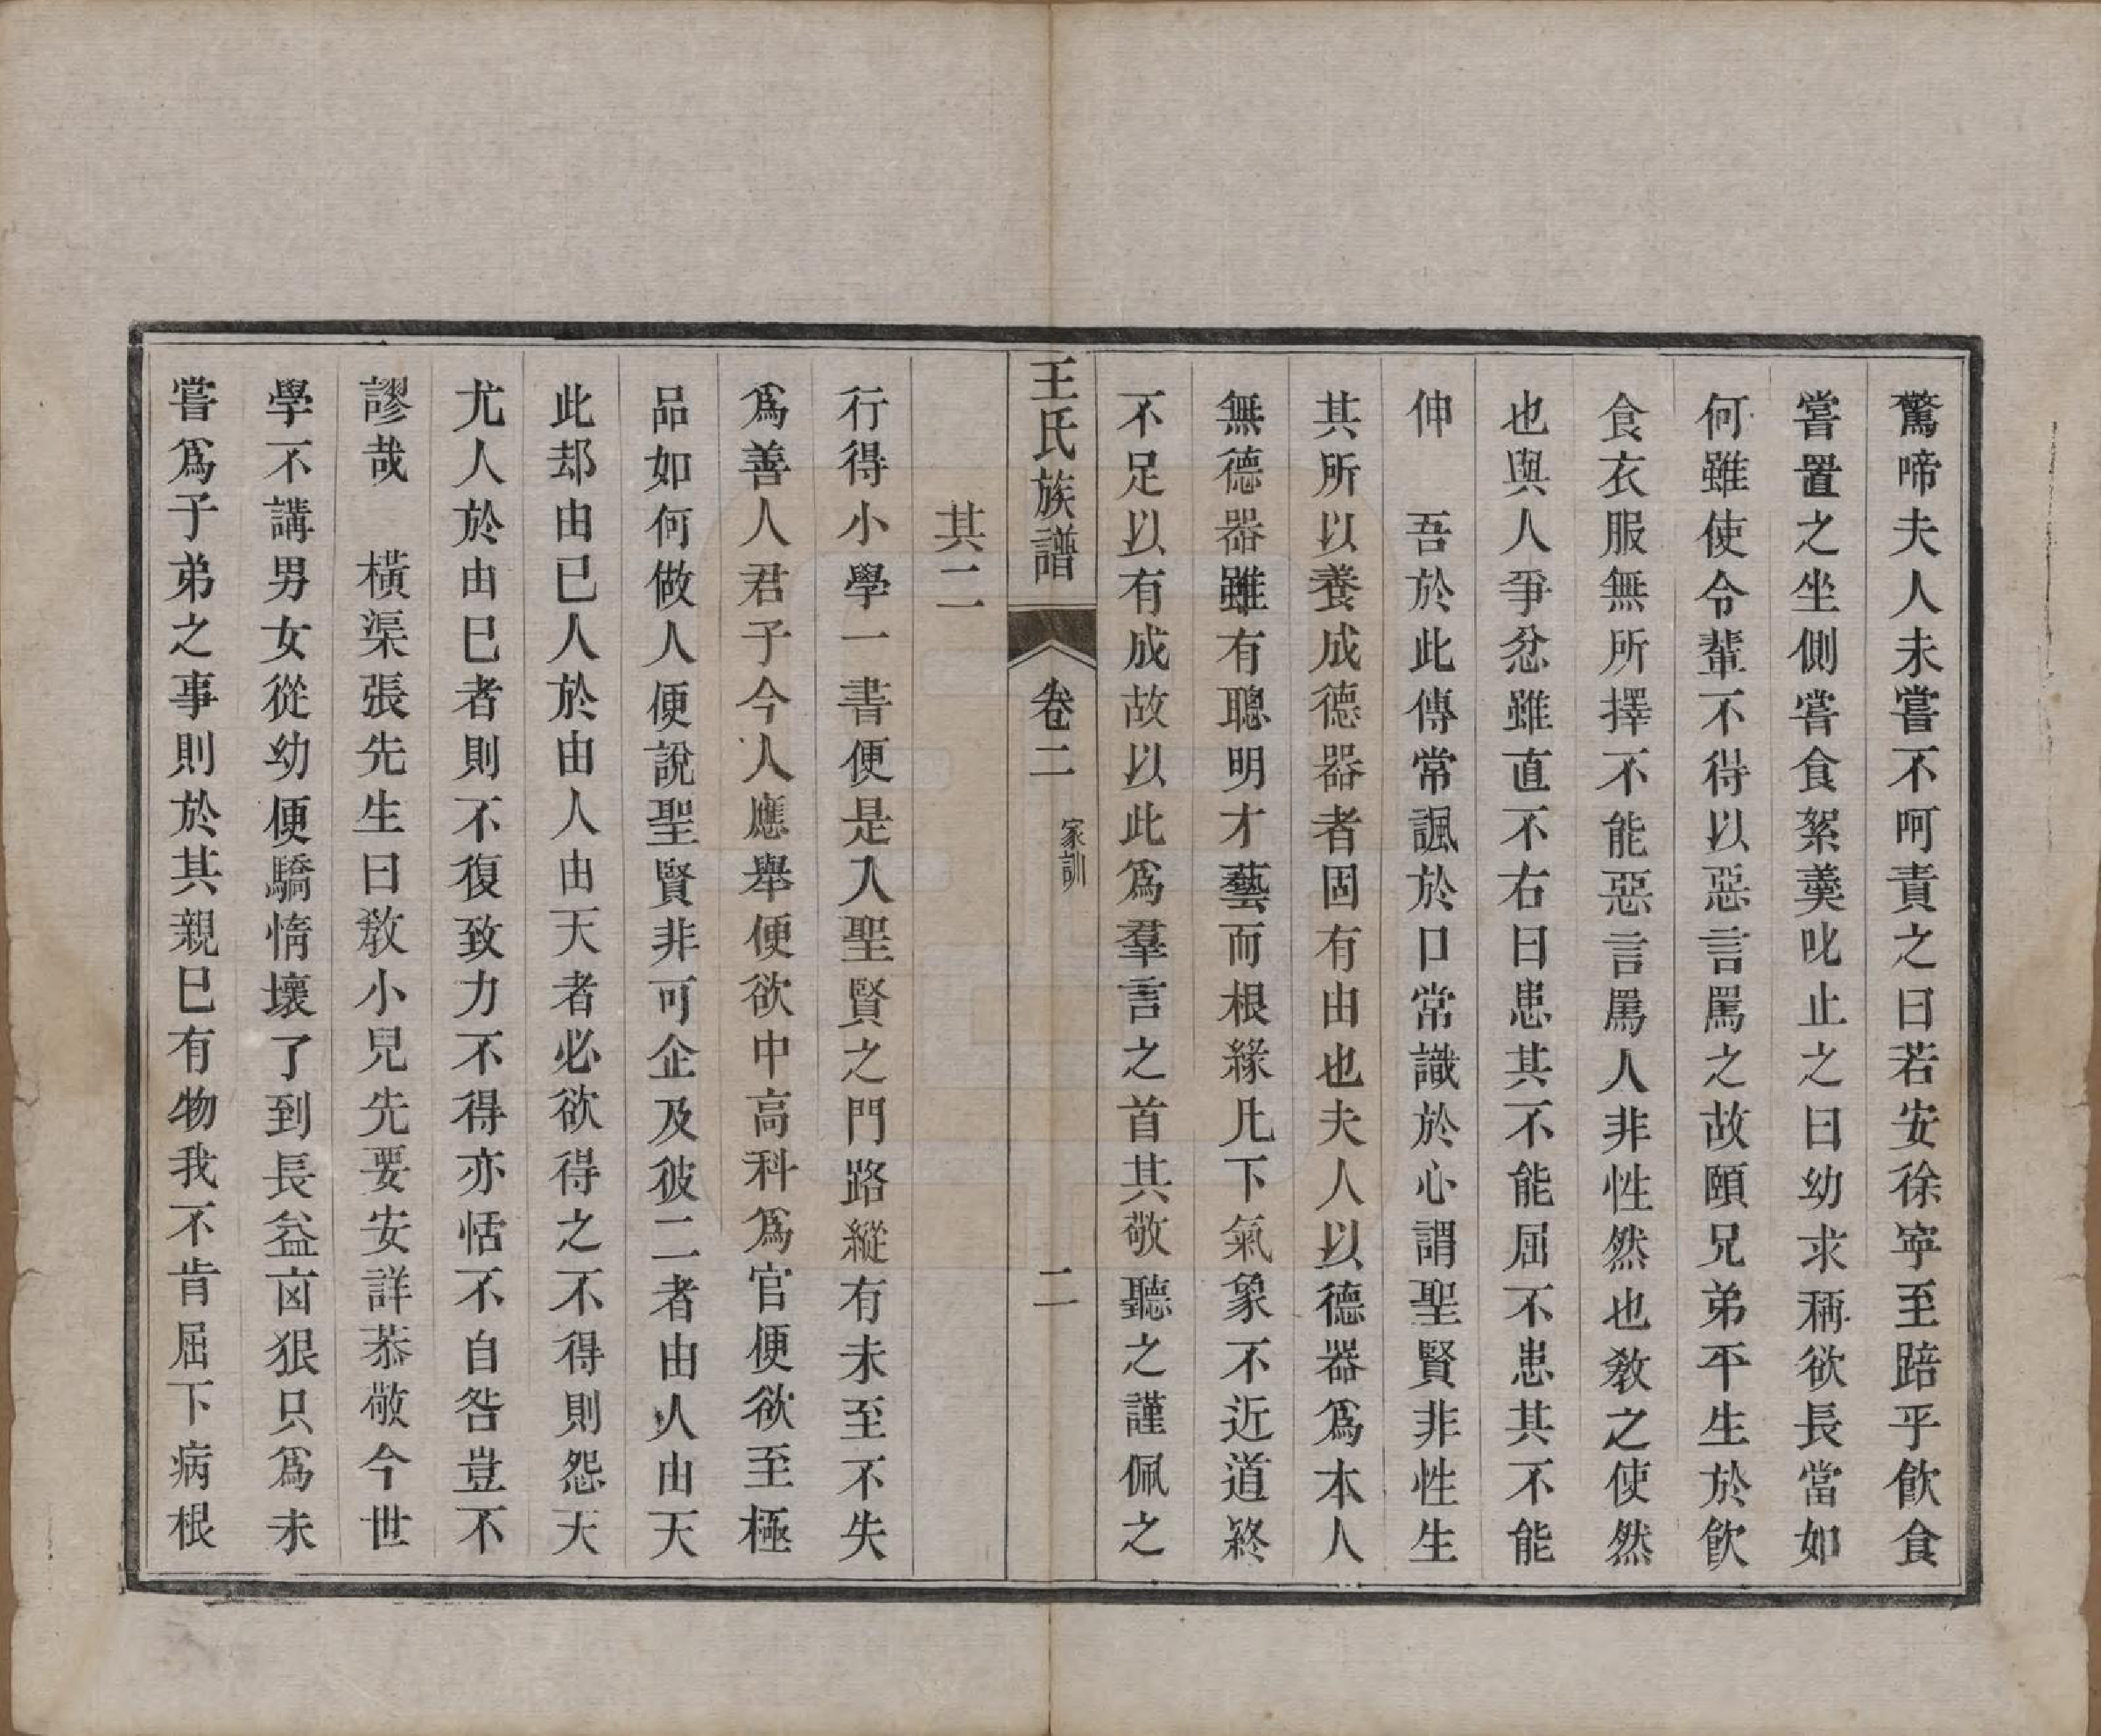 驚啼夫人未嘗不呵責之曰若安徐寧至踣乎飲食
嘗置之坐側嘗食絮羹叱止之曰幼求稱欲長當如
何雖使令輩不得以惡言罵之故頤兄弟平生於飲
食衣服無所擇不能惡言罵人非性然也敎之使然
也與人爭忿雖直不右曰患其不能屈不患其不能
伸　吾於此傳常諷於口常識於心謂聖賢非性生
其所以養成德器者固有由也夫人以德器爲本人
無德器雖有聰明才藝而根緣凡下氣象不近道終
不足以有成故以此爲羣言之首其敬聽之謹佩之
王氏族譜　卷二　家訓　二
其二
行得小學一書便是入聖賢之門路縱有未至不失
爲善人君子今人應舉便欲中高科爲官便欲至極
品如何做人便說聖賢非可企及彼二者由人由天
此却由已人於由人由天者必欲得之不得則怨天
尤人於由巳者則不復致力不得亦恬不自咎豈不
謬哉　橫渠張先生曰敎小兒先要安詳恭敬今世
學不講男女從幼便驕惰壞了到長益凶狠只爲未
嘗爲子弟之事則於其親巳有物我不肯屈下病根